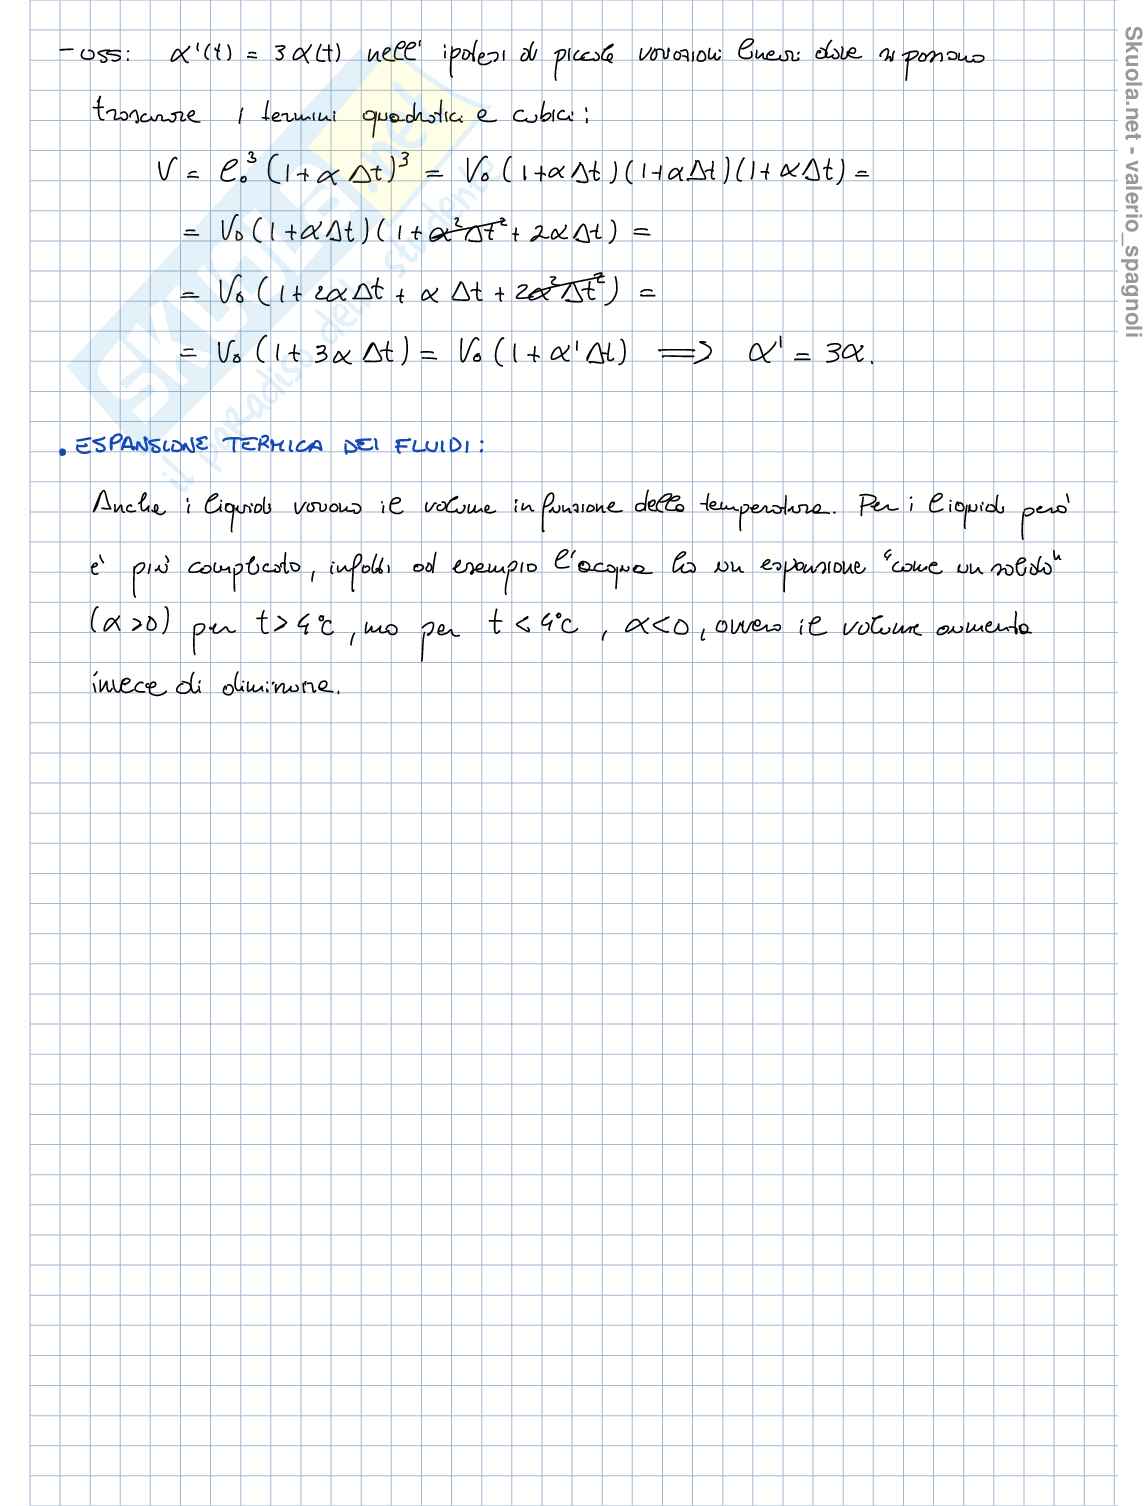 - oss: α'(t) = 3α(t) nell' ipotesi di piccole variazioni lineari dove si possono
trascurare i termini quadratici e cubici:
V = l₀³(1+α Δt)³ = V₀(1+αΔt)(1+αΔt)(1+αΔt) =
= V₀(1+αΔt)(1+α²Δt²+2αΔt) =
= V₀(1+2αΔt + αΔt + 2α²Δt²) =
= V₀(1+3αΔt) = V₀(1+α'Δt) ⟹ α' = 3α.
. ESPANSIONE TERMICA DEI FLUIDI:
Anche i liquidi variano il volume in funzione della temperatura. Per i liquidi però
è più complicato, infatti ad esempio l'acqua ha un espansione "come un solido"
(α>0) per t>4°C, ma per t<4°C, α<0, ovvero il volume aumenta
invece di diminuire.
Skuola.net - valerio_spagnoli
SKUOLA.net
il paradiso dello studente